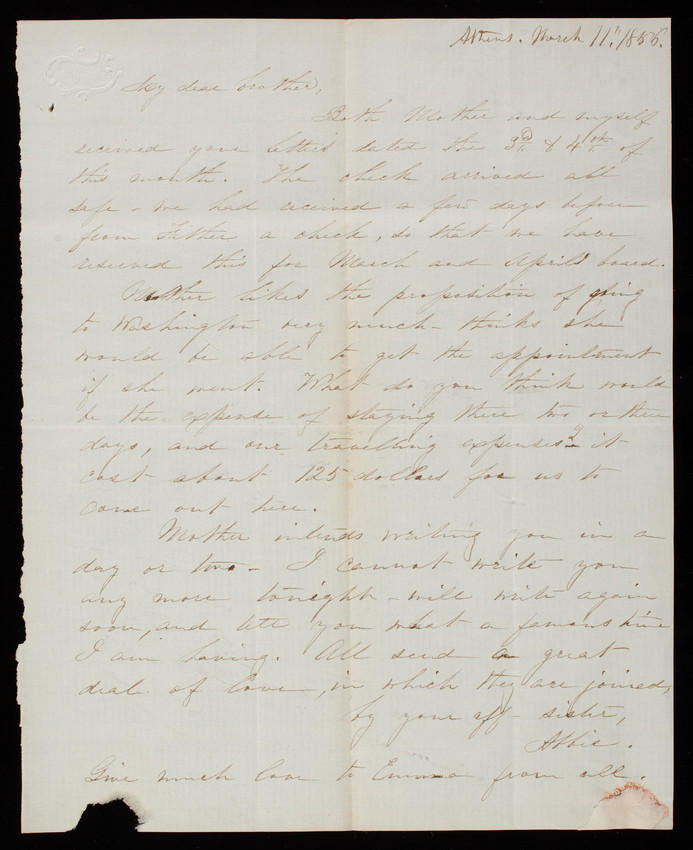 Athens. March 11th, 1855.
My dear brother,
Both Mother and myself
received your letters dated the 3d & 4th of
this month. The check arrived all
safe - we had received a few days before
from Father a check, so that we have
reserved this for March and Aprils board.
Mother likes the proposition of going
to Washington very much - thinks she
would be able to get the appointment
if she went. What do you think would
be the expense of staying there two or three
days, and our travelling expenses? it
cost about 125 dollars for us to
come out here.
Mother intends writing you in a
day or two - I cannot write you
any more tonight - will write again
soon, and tell you what a famous time
I am having. All send a great
deal of love, in which they are joined,
by your aff- sister,
Abbie.
Give much love to Emma from all.